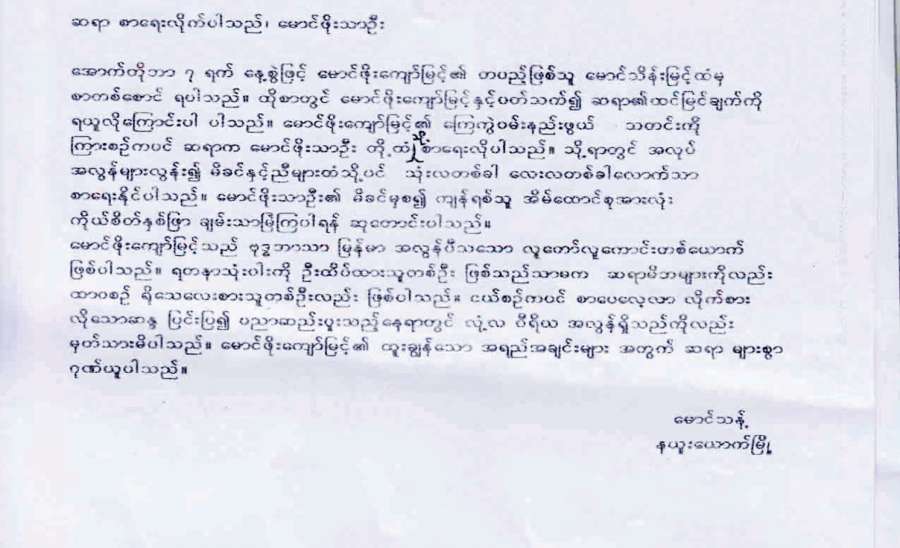 ဆရာ စာရေးလိုက်ပါသည်၊ မောင်ဖိုးသာဦး
အောက်တိုဘာ ၇ ရက် နေ့စွဲဖြင့် မောင်ဖိုးကျော်မြင့်၏ တပည့်ဖြစ်သူ မောင်သိန်းမြင့်ထံမှ
စာတစ်စောင် ရပါသည်။ ထိုစာတွင် မောင်ဖိုးကျော်မြင့်နှင့်ပတ်သက်၍ ဆရာ၏ထင်မြင်ချက်ကို
ရယူလိုကြောင်းပါ ပါသည်။ မောင်ဖိုးကျော်မြင့်၏ ကြေကွဲဝမ်းနည်းဖွယ် သတင်းကို
ကြားစဉ်ကပင် ဆရာက မောင်ဖိုးသာဦး တို့ထံသို့ စာရေးလိုပါသည်။ သို့ရာတွင် အလုပ်
အလွန်များလွန်း၍ မိခင်နှင့်ညီများထံသို့ပင် သုံးလတစ်ခါ လေးလတစ်ခါလောက်သာ
စာရေးနိုင်ပါသည်။ မောင်ဖိုးသာဦး၏ မိခင်မှစ၍ ကျန်ရစ်သူ အိမ်ထောင်စုအားလုံး
ကိုယ်စိတ်နှစ်ဖြာ ချမ်းသာမြဲကြပါရန် ဆုတောင်းပါသည်။
မောင်ဖိုးကျော်မြင့်သည် ဗုဒ္ဓဘာသာ မြန်မာ အလွန်ပီသသော လူတော်လူကောင်းတစ်ယောက်
ဖြစ်ပါသည်။ ရတနာသုံးပါးကို ဦးထိပ်ထားသူတစ်ဦး ဖြစ်သည်သာမက ဆရာမိဘများကိုလည်း
ထာဝစဉ် ရိုသေလေးစားသူတစ်ဦးလည်း ဖြစ်ပါသည်။ ငယ်စဉ်ကပင် စာပေလေ့လာ လိုက်စား
လိုသောဆန္ဒ ပြင်းပြ၍ ပညာဆည်းပူးသည့်နေရာတွင် လုံ့လ ဝီရိယ အလွန်ရှိသည်ကိုလည်း
မှတ်သားမိပါသည်။ မောင်ဖိုးကျော်မြင့်၏ ထူးချွန်သော အရည်အချင်းများ အတွက် ဆရာ များစွာ
ဂုဏ်ယူပါသည်။
မောင်သန့်
နယူးယောက်မြို့